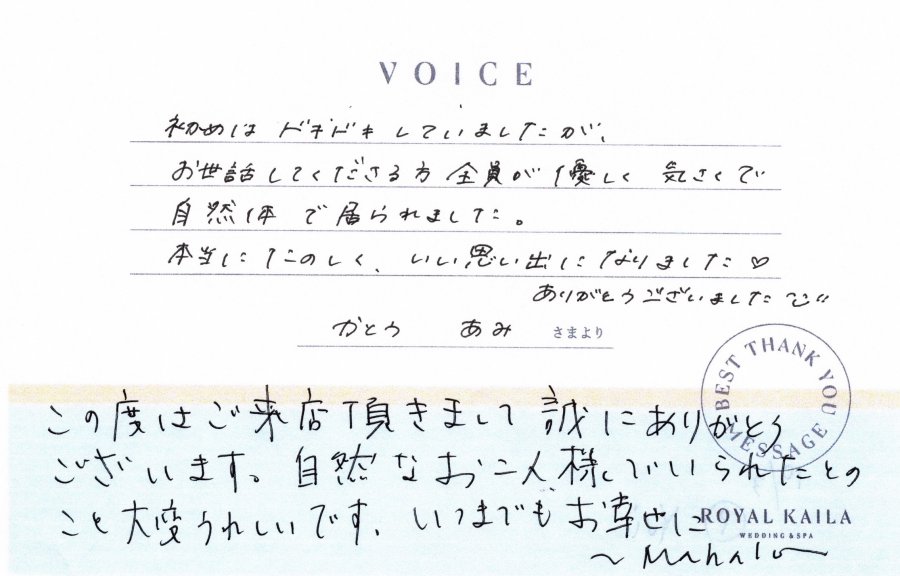 VOICE
初めは ドキドキしていましたが、
お世話してくださる方 全員が 優しく 気さくで
自然体で居られました。
本当にたのしく、いい思い出になりました♡
ありがとうございました
かとう あみ さまより
BEST THANK YOU MESSAGE
この度はご来店頂きまして 誠にありがとう
ございます。自然なお二人様でいられたとの
こと大変うれしいです。いつまでもお幸せに
ROYAL KAILA
WEDDING & SPA
～Mahalo～